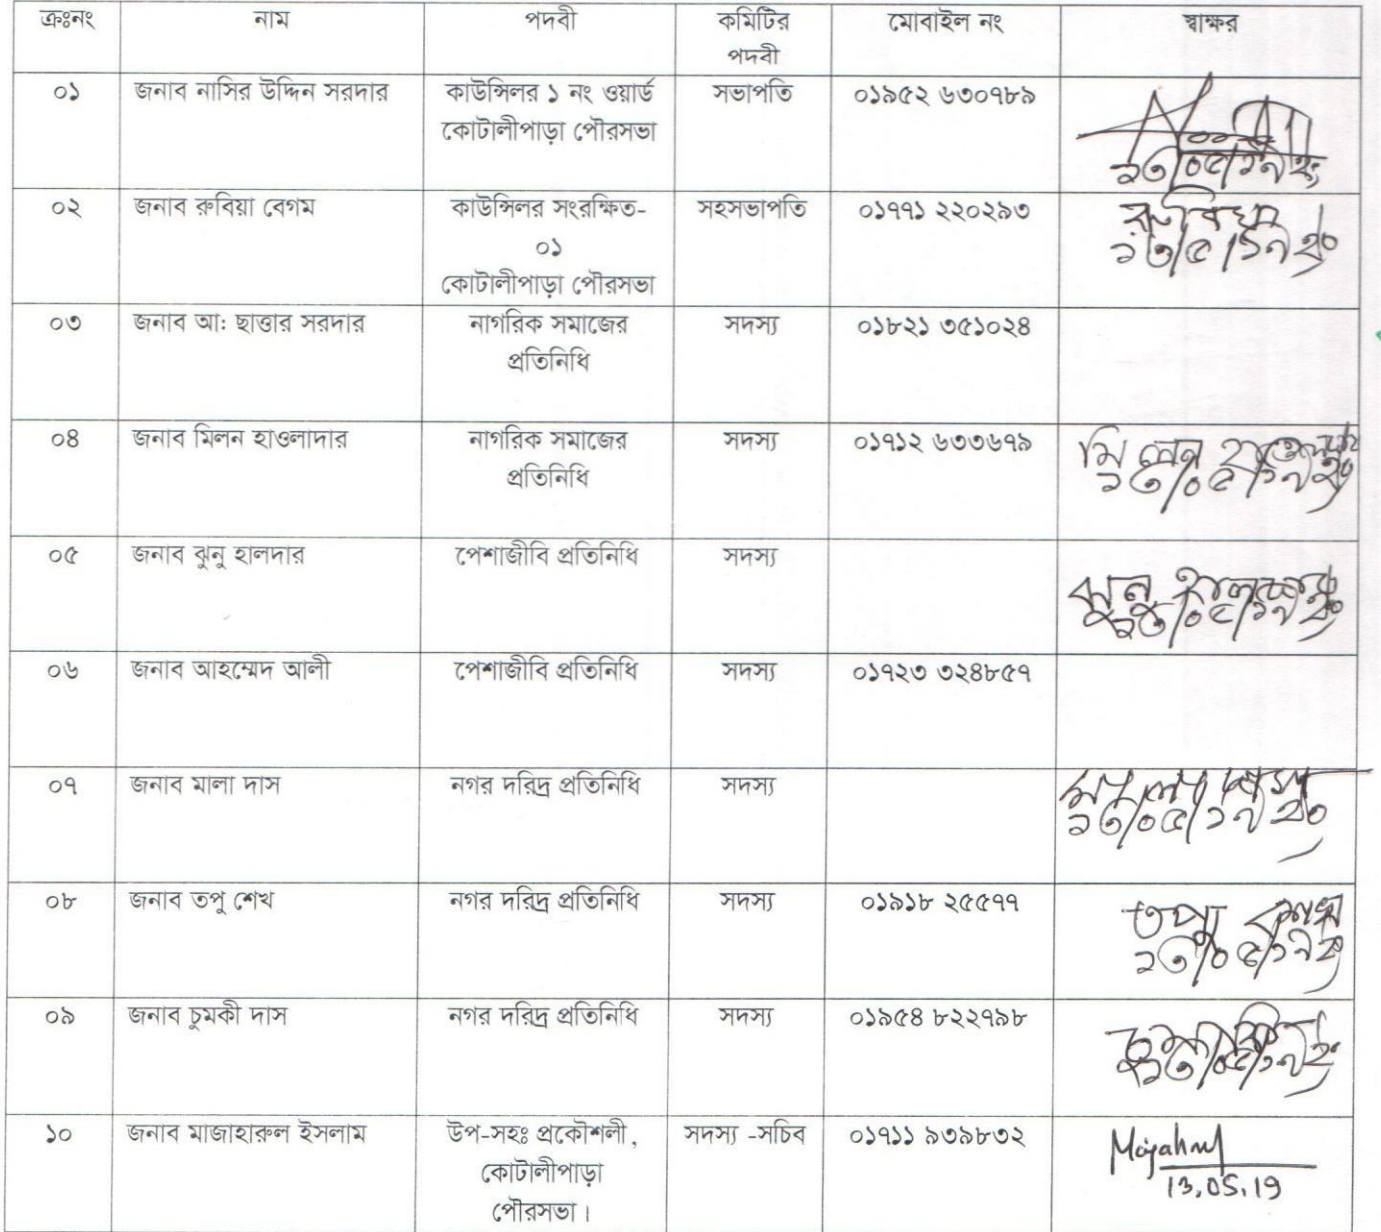 ক্রঃনং নাম পদবী কমিটির পদবী মোবাইল নং স্বাক্ষর
০১ জনাব নাসির উদ্দিন সরদার কাউন্সিলর ১ নং ওয়ার্ড কোটালীপাড়া পৌরসভা সভাপতি ০১৯৫২ ৬৩০৭৮৯
১৩/০৫/১৯ ইং
০২ জনাব রুবিয়া বেগম কাউন্সিলর সংরক্ষিত-০১ কোটালীপাড়া পৌরসভা সহসভাপতি ০১৭৭১ ২২০২৯৩ রুবিয়া
১৩/৫/১৯ ইং
০৩ জনাব আঃ ছাত্তার সরদার নাগরিক সমাজের প্রতিনিধি সদস্য ০১৮২১ ৩৫১০২৪
০৪ জনাব মিলন হাওলাদার নাগরিক সমাজের প্রতিনিধি সদস্য ০১৭১২ ৬৩৩৬৭৯ মিলন হাওলাদার
১৩/০৫/১৯ ইং
০৫ জনাব ঝুনু হালদার পেশাজীবি প্রতিনিধি সদস্য ঝুনু হালদার
১৩/০৫/১৯ ইং
০৬ জনাব আহম্মেদ আলী পেশাজীবি প্রতিনিধি সদস্য ০১৭২৩ ৩২৪৮৫৭
০৭ জনাব মালা দাস নগর দরিদ্র প্রতিনিধি সদস্য মালা দাস
১৩/০৫/১৯ ইং
০৮ জনাব তপু শেখ নগর দরিদ্র প্রতিনিধি সদস্য ০১৯১৮ ২৫৫৭৭ তপু শেখ
১৩/০৫/১৯ ইং
০৯ জনাব চুমকী দাস নগর দরিদ্র প্রতিনিধি সদস্য ০১৯৫৪ ৮২২৭৯৮
১৩/০৫/১৯ ইং
১০ জনাব মাজাহারুল ইসলাম উপ-সহঃ প্রকৌশলী, কোটালীপাড়া পৌরসভা। সদস্য -সচিব ০১৭১১ ৯৩৯৮৩২ Majahrul
13.05.19